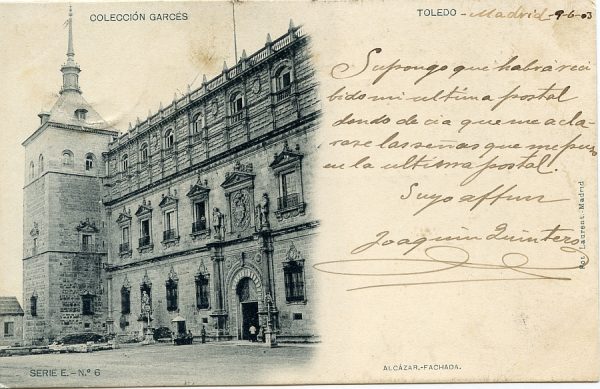 COLECCIÓN GARCÉS
TOLEDO - Madrid 9-6-03
Supongo que habrá reci
bido mi ultima postal
dondo de cia que me acla-
rase las señas que me puso
en la ultima postal.
Suyo affmo
Joaquin Quintero
Fot. Laurent.-Madrid
SERIE E.-N.º 6
ALCÁZAR.-FACHADA.